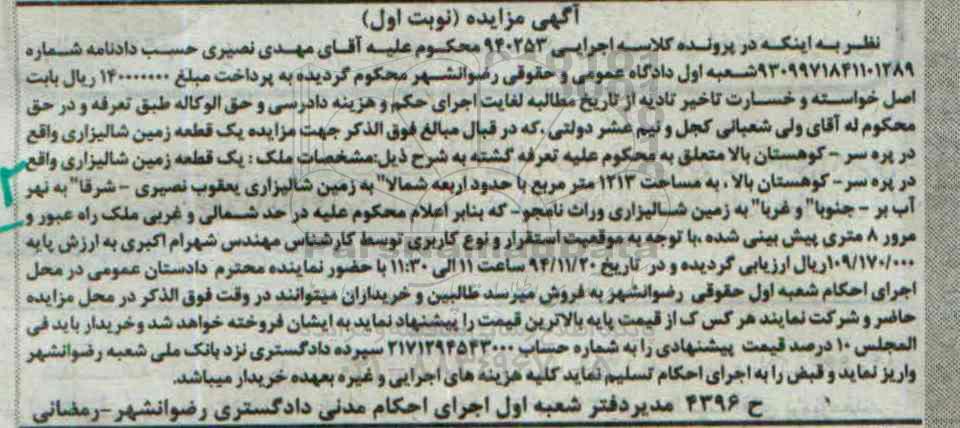 آگهی مزایده (نوبت اول)
نظر به اینکه در پرونده کلاسه اجرایی ۹۴۰۲۵۳ محکوم علیه آقای مهدی نصیری حسب دادنامه شماره
۹۳۰۹۹۷۱۸۴۱۱۰۱۲۸۹ شعبه اول دادگاه عمومی و حقوقی رضوانشهر محکوم گردیده به پرداخت مبلغ ۱۴۰۰۰۰۰۰۰ ریال بابت
اصل خواسته و خسارت تاخیر تادیه از تاریخ مطالبه لغایت اجرای حکم و هزینه دادرسی و حق الوکاله طبق تعرفه و در حق
محکوم له آقای ولی شعبانی کجل و نیم عشر دولتی ،که در قبال مبالغ فوق الذکر جهت مزایده یک قطعه زمین شالیزاری واقع
در پره سر - کوهستان بالا متعلق به محکوم علیه تعرفه گشته به شرح ذیل:مشخصات ملک : یک قطعه زمین شالیزاری واقع
در پره سر- کوهستان بالا ، به مساحت ۱۲۱۳ متر مربع با حدود اربعه شمالا" به زمین شالیزاری یعقوب نصیری - شرقا" به نهر
آب بر - جنوبا" و غربا" به زمین شالیزاری وراث نامجو- که بنابر اعلام محکوم علیه در حد شمالی و غربی ملک راه عبور و
مرور ۸ متری پیش بینی شده ،با توجه به موقعیت استقرار و نوع کاربری توسط کارشناس مهندس شهرام اکبری به ارزش پایه
۱۰۹/۱۷۰/۰۰۰ریال ارزیابی گردیده و در تاریخ ۹۴/۱۱/۲۰ ساعت ۱۱ الی ۱۱:۳۰ با حضور نماینده محترم دادستان عمومی در محل
اجرای احکام شعبه اول حقوقی رضوانشهر به فروش میرسد طالبین و خریداران میتوانند در وقت فوق الذکر در محل مزایده
حاضر و شرکت نمایند هر کس ک از قیمت پایه بالاترین قیمت را پیشنهاد نماید به ایشان فروخته خواهد شد وخریدار باید فی
المجلس ۱۰ درصد قیمت پیشنهادی را به شماره حساب ۲۱۷۱۲۹۴۵۴۳۰۰۰ سپرده دادگستری نزد بانک ملی شعبه رضوانشهر
واریز نماید و قبض را به اجرای احکام تسلیم نماید کلیه هزینه های اجرایی و غیره بعهده خریدار میباشد.
ح ۴۳۹۶ مدیردفتر شعبه اول اجرای احکام مدنی دادگستری رضوانشهر-رمضانی